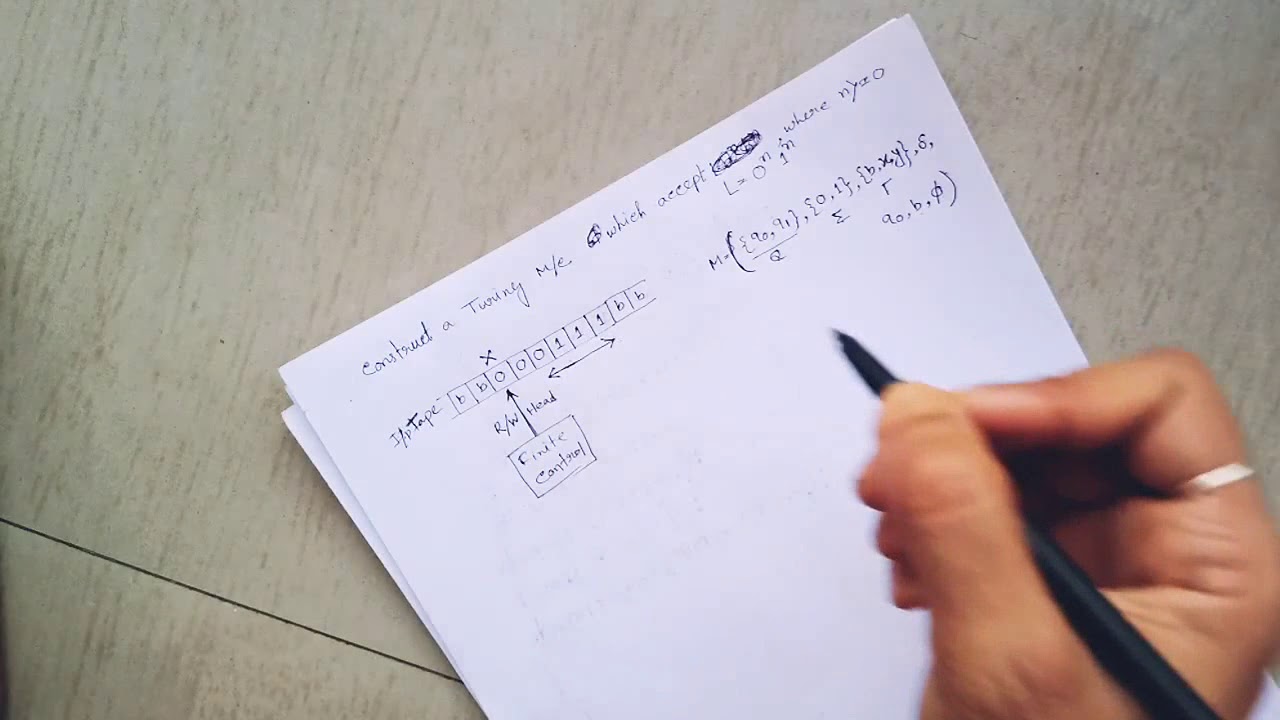 Construct a Turing M/c which accept
L = 0ⁿ 1ⁿ, where n>=0
M=({q0,q1},{0,1},{b,x,y},δ,
Q Σ Γ q0,b,ϕ)
X
I/p Tape b b 0 0 0 1 1 1 b b
R/W Head
Finite
control